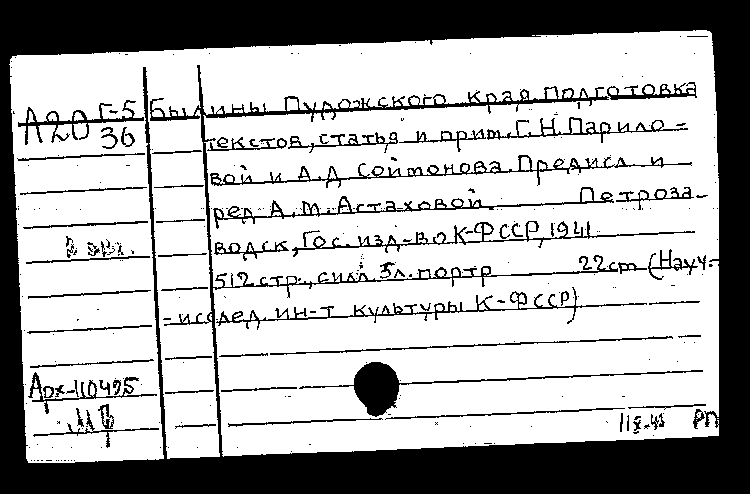 А20 Г-5 Былины Пудожского края. Подготовка
36 текстов, статья и прим. Г.Н. Парило=
вой и А.Д Соймонова. Предисл и
ред А.М. Астаховой. Петроза-
2 экз. водск, Гос. изд-во К-ФССР, 1941
512 стр., с илл. 5л. портр 22 cm (Науч.-
-исслед. ин-т культуры К-ФССР)
Арх-110495
РП